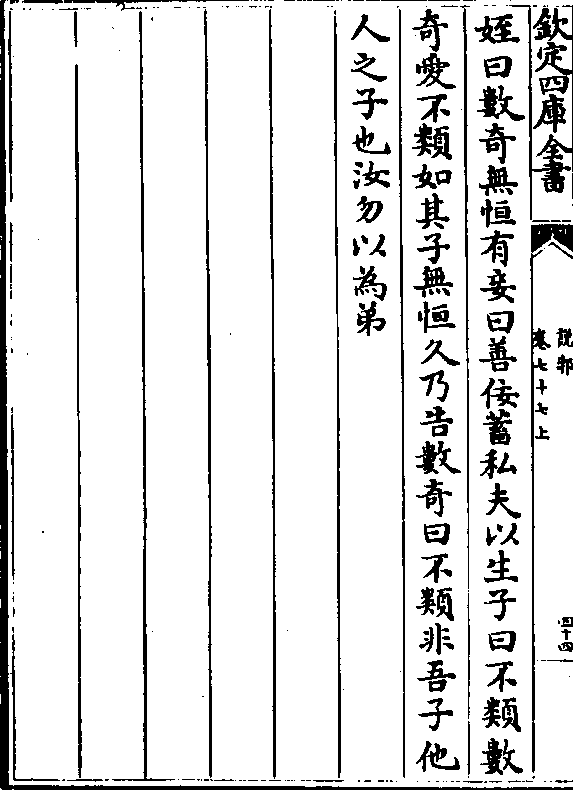 欽定四庫全書
說郛
卷七十七上
四十四
姪曰數奇無恒有妾曰善佞蓄私夫以生子曰不類數
奇愛不類如其子無恒久乃告數奇曰不類非吾子他
人之子也汝勿以為弟